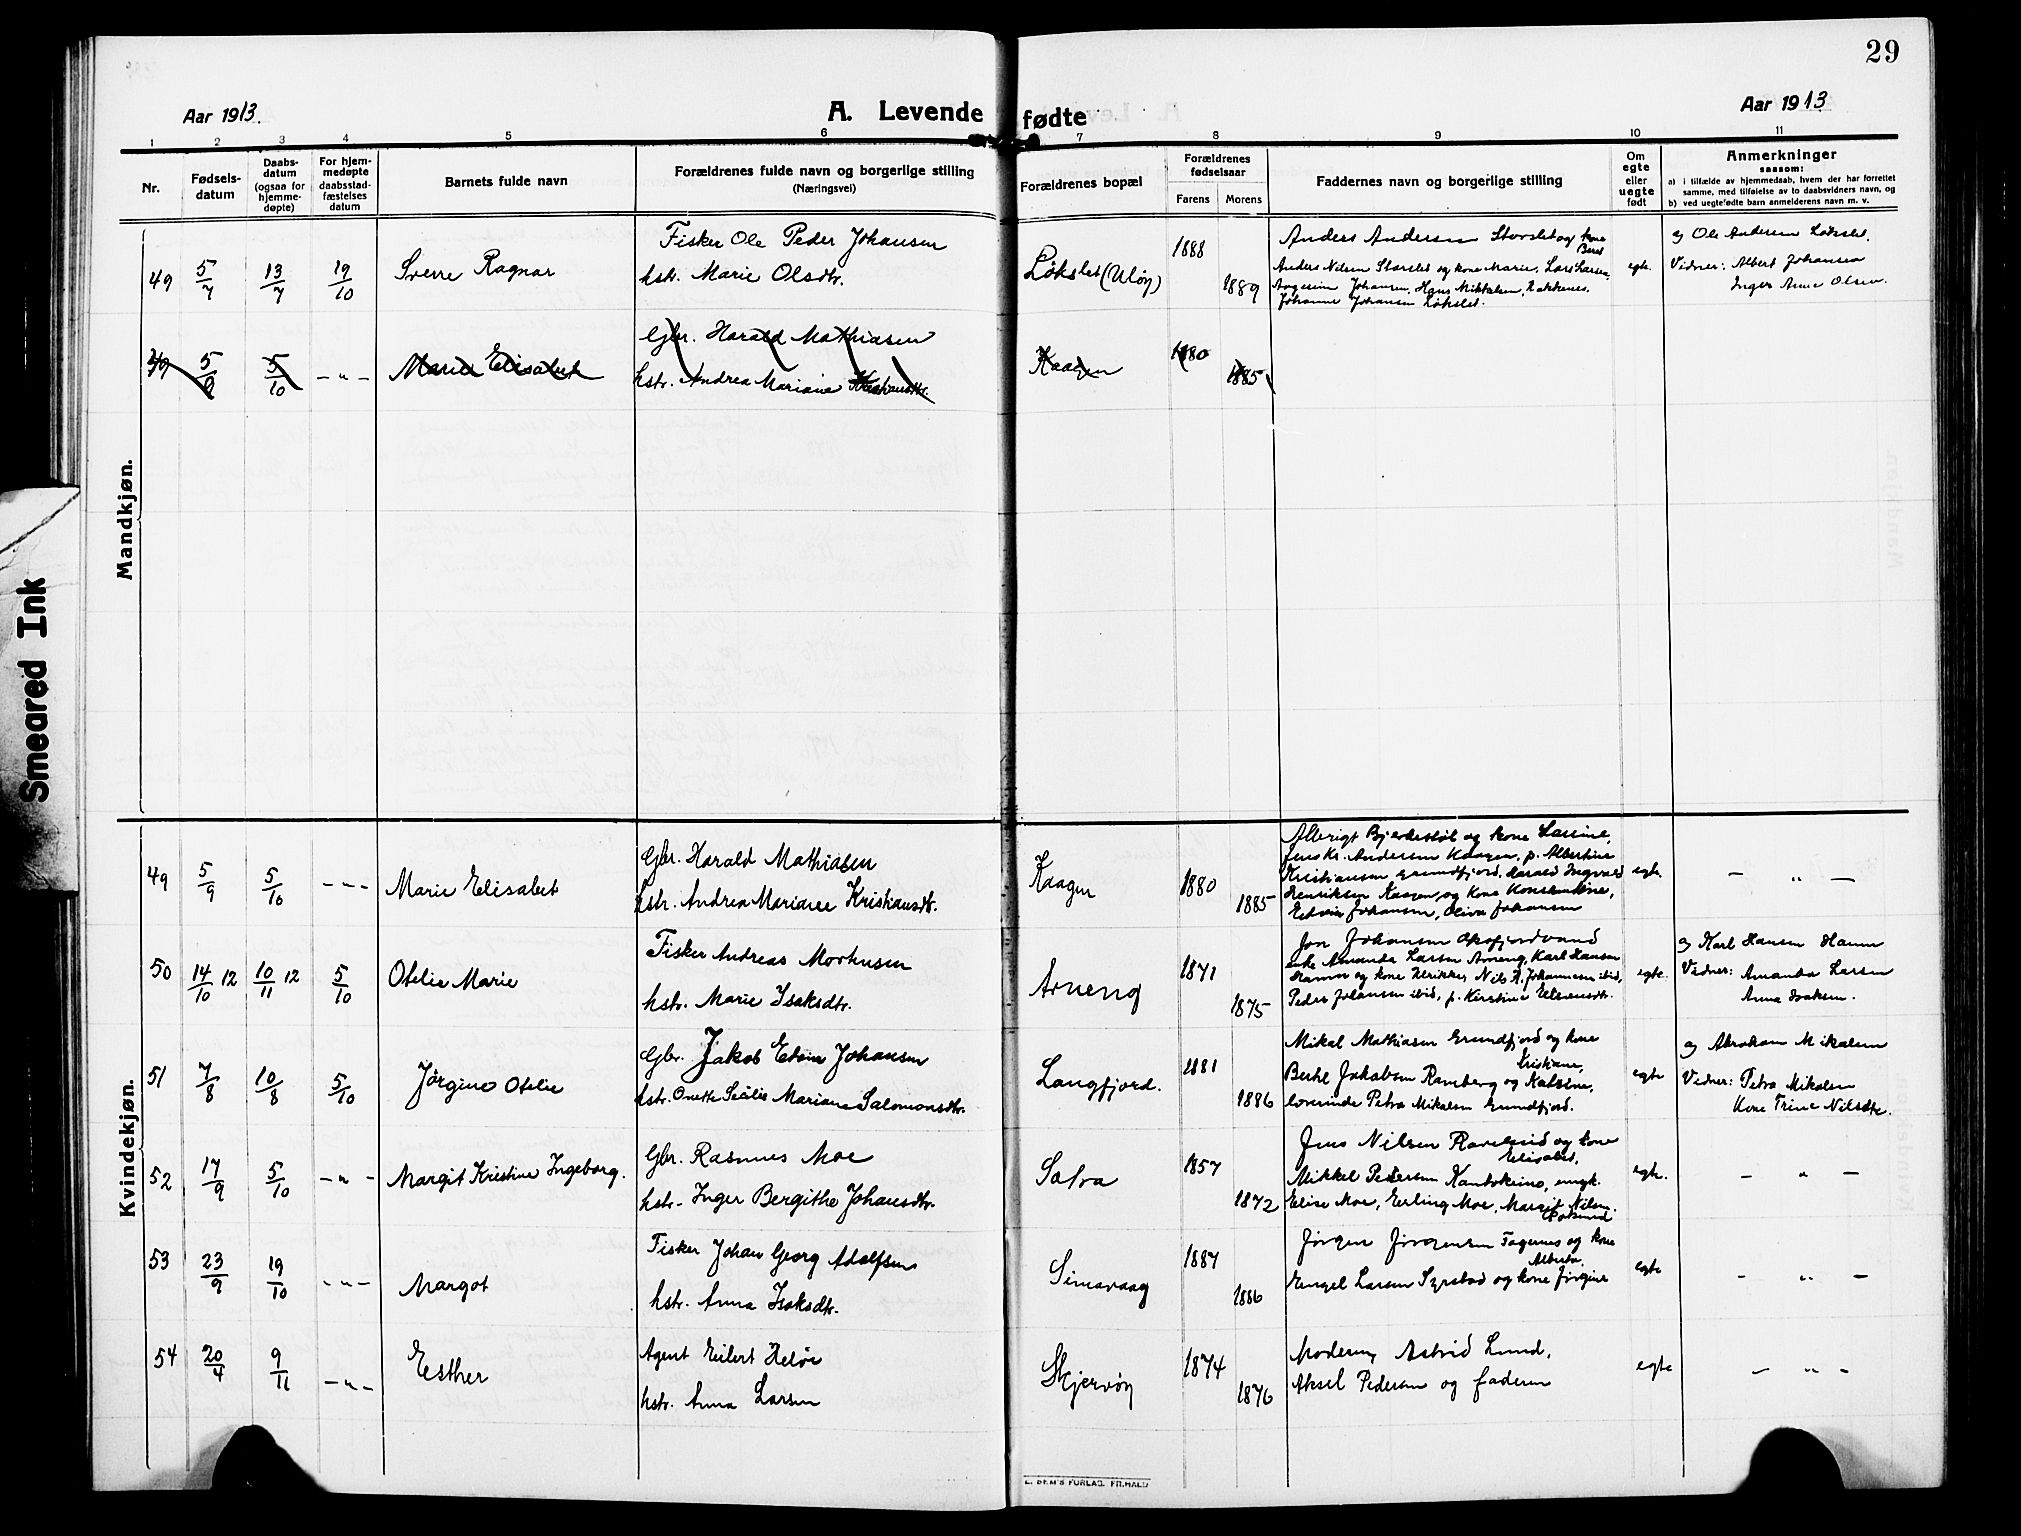 29
Aar 1913.
A. Levende fødte
Aar 1913
1 2 3 4 5 6 7 8 9 10 11
Nr.
Fødsels-
datum
Daabs-
datum
(ogsaa for
hjemme-
døpte)
For hjem-
medøpte
daabsstad-
fæstelses
datum
Barnets fulde navn
Forældrenes fulde navn og borgerlige stilling
(Næringsvei)
Forældrenes bopæl
Forældrenes
fødselsaar
Farens
Morens
Faddernes navn og borgerlige stilling
Om
egte
eller
uegte
født
Anmerkninger
saasom:
a) i tilfælde av hjemmedaab, hvem der har forrettet
samme, med tilføielse av to daabsvidners navn, og
b) ved uegtefødte barn anmelderens navn m. v.
Mandkjøn.
49 5/7 13/7 19/10 Sverre Ragnar
Fisker Ole Peder Johansen
hstr. Marie Olsdtr.
Løkslet (Uløy) 1888 1889
Anders Andersen Storslet og kone
Berit
Anders Nilsen Storslet og kone Marie, Lars Larsen,
Johansen, Hans Mikkelsen,
Johanne Johansen Løkslet.
egte.
a) Ole Andersen Løkslet.
Vidner: Albert Johansen
Inger Anne Olsen.
49 5/9 5/10 - " - Marie Elisabet
Gbr. Harald Mathiasen
hstr. Andrea Mariane Kristiansdtr.
Kaagen 1880 1885
Kvindekjøn.
49 5/9 5/10 - " - Marie Elisabet
Gbr. Harald Mathiasen
hstr. Andrea Mariane Kristiansdtr.
Kaagen 1880 1885
og kone Lassine,
Jens Kr. Andersen Kaagen, p. Albertine
Kristiansen Grundfjord, Harald Ingvald
Henriksen Kaagen og kone Konstantine,
Edvin Johansen, Oliva Johansen
egte. - " -
50 14/10 12 10/11 12 5/10 Otelie Marie
Fisker Andreas Morhusen
hstr. Marie Isaksdtr.
Arneng 1871 1875
Jon Johansen Oksfjordvand
enke Amanda Larsen Arneng, Karl Hansen
Hamn og kone Ulrikke, Nils R. Johannesen ibid,
Peder Johansen ibid, p. Kirstine
egte.
a) Karl Hansen Hamn
Vidner: Amanda Larsen
Anna Isaksen.
51 7/8 10/8 5/10 Jørgine Otelie
Gbr. Jakob Edvin Johansen
hstr. Onette Secilie Mariane Salomonsdtr.
Langfjord. 1881 1886
Mikal Mathiasen Grundfjord og kone
Kristiane,
Berthl Jakobsen Ramberg og
lærerinde Petra Mikalsen Grundfjord.
egte
a) Abraham Mikalsen
Vidner: Petra Mikalsen
Kone Trine Nilsdtr.
52 17/9 5/10 - " - Margit Kristine Ingeborg.
Gbr. Rasmus Moe
hstr. Inger Bergithe Johansdtr.
Satra 1857 1872
Jens Nilsen Ravelseid og kone
Elisabet,
Mikkel Pedersen Kautokeino, ungk.
Elise Moe, Erling Moe, Margit Nilsen.
egte. - " -
53 23/9 19/10 - " - Margot
Fisker Johan Georg Adolfsen
hstr. Anna Isaksdtr.
Simavaag 1887 1886
Jørgen Jørgensen Fagernes og kone
Alberta,
Engel Larsen og kone Jørgine
egte - " -
54 20/4 9/11 - " - Esther
Agent Eilert Heløe
hstr. Anna Larsen
Skjervøy 1874 1876
Moderen, Astrid Lund,
Aksel Pedersen og faderen
egte - " -
E. SEM'S FORLAG. FR.HALD
Smeared Ink